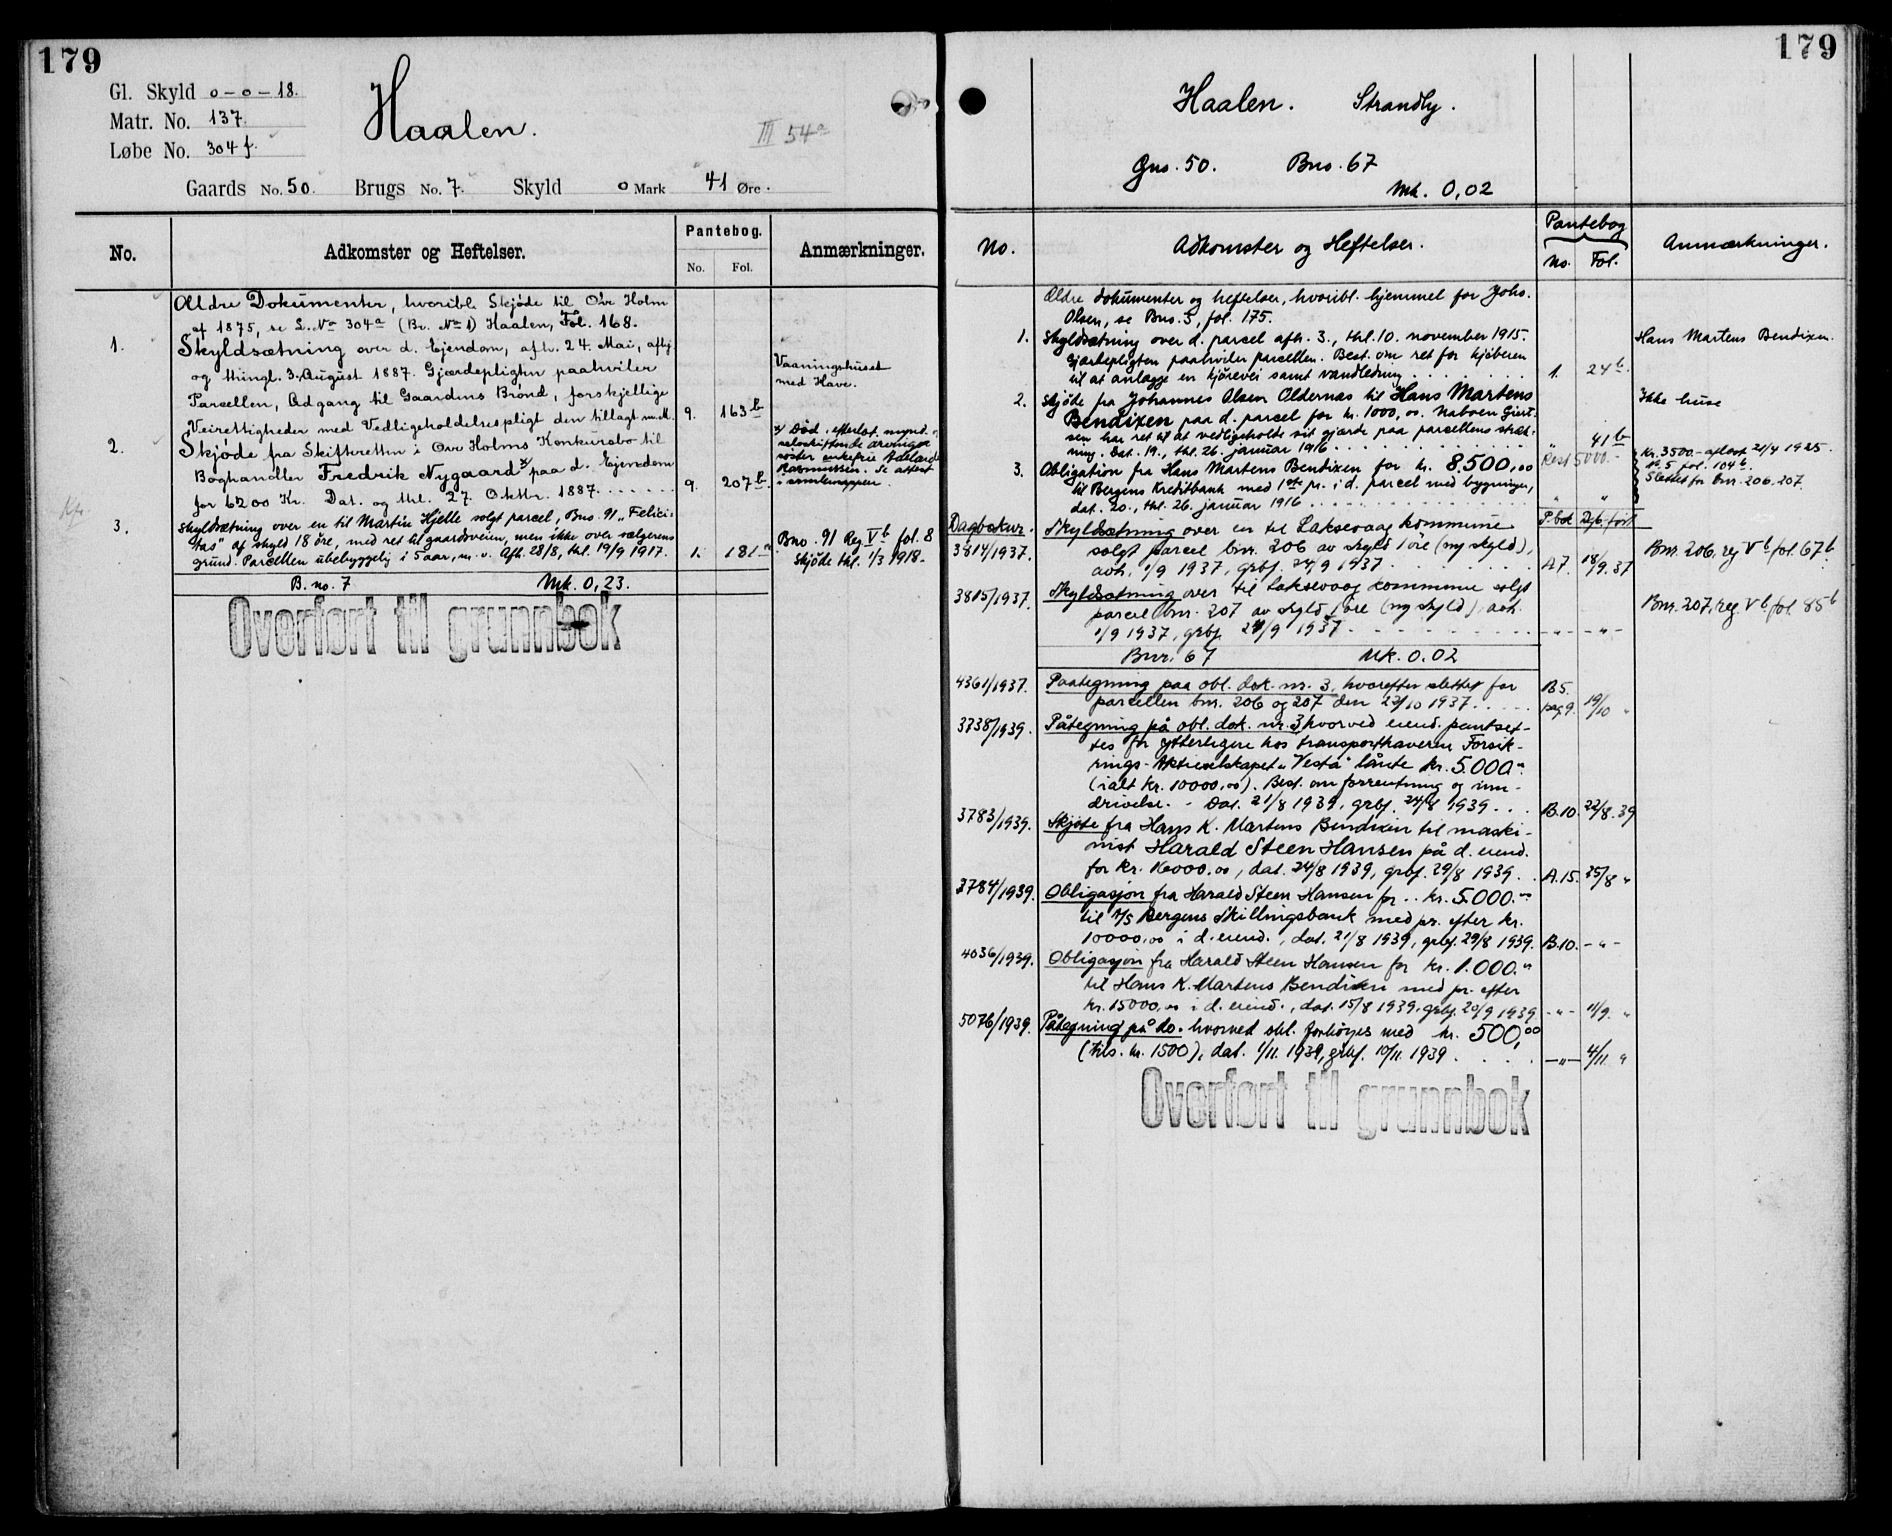 179
Gl. Skyld 0 - 0 - 18.
Matr. No. 137.
Løbe No. 304 f.
Haalen.
III 54a
Gaards No. 50. Brugs No. 7. Skyld 0 Mark 41 Øre.
No. Adkomster og Heftelser. Pantebog. No. Fol. Anmærkninger.
Ældre Dokumenter, hvoribl. Skjøde til Ovr Holm
af 1875, se L. No 304a (Br. No 1) Haalen, Fol. 168.
1. Skyldsætning over d. Ejendom, afh. 24. Mai, afhj.
og thingl. 3. August 1887. Gjærdepligten paahviler
Parcellen, Adgang til Gaardens Brønd, forskjellige
Veirettigheder med Vedligeholdelsespligt den tillagt m. M. 9. 163b
Vaaningshuset
med Have.
2. Skjøde fra Skifteretten i Ovr Holms Konkursbo til
Boghandler Fredrik Nygaard x) paa d. Ejendom
for 6200 Kr. Dat. og thl. 27. Oktbr. 1887. . . . . . . 9. 207b.
x) Død, efterlat. mynd. og
selvskiftende arvinger
søster enkefru
Rasmussen. Se attest
i samlemappen.
3. Skyldsætning over en til Martin Hjelle solgt parcel, Bno. 91 „Felici-
tas" af skyld 18 øre, med ret til gaardsveien, men ikke over sælgerens
grund. Parcellen ubebyggelig i 5 aar, m. v. Afh. 28/8, thl. 19/9 1917. 1. 181a
Bno. 91 Reg Vb fol. 8
Skjøde thl. 1/3 1918.
B. no. 7 Mk. 0,23.
Overført til grunnbok
179
Haalen. Strandby.
Gno. 50. Bno. 67
Mk. 0,02
No. Adkomster og Heftelser. Pantebog No. Fol. Anmærkninger.
Ældre dokumenter og heftelser, hvoribl. hjemmel for Johs.
Olsen, se Bno. 5, fol. 175.
1. Skyldsætning over d. parcel afh. 3., thl. 10. november 1915.
Gjærdepligten paahviler parcellen. Best. om ret for kjøberen
til at anlægge en kjørevei samt vandledning . . . . . . . . 1. 24b.
Hans Martens Bendixen.
2. Skjøde fra Johannes Olsen Oldernæs til Hans Martens
Bendixen paa d. parcel for kr. 1000,00. Naboen Gust-
sen har ret til at vedligeholde sit gjærde paa parcellens stræk-
ning. Dat. 19., thl. 26. januar 1916 . . . . . . . . . . „ 41b
Ikke huse
3. Obligation fra Hans Martens Bendixen for kr. 8.500,00
til Bergens Kreditbank med 1ste pr. i d. parcel med bygninger,
dat. 20., thl. 26. januar 1916 . . . . . . . . . „ „
Rest 5000.-
Kr. 3500.- afløst 21/4 1925.
No. 5 fol. 104b.
Slettet for bnr. 206, 207.
Dagboknr. P.bok
3814/1937. Skyldsætning over en til Laksevaag kommune
solgt parcel bnr. 206 av skyld 1 øre (ny skyld),
avh. 1/9 1937, grbf. 24/9 1937 . . . . . . A7. 18/9.37
Bnr. 206. reg Vb fol 67b
3815/1937. Skyldsætning over til Laksevaag kommune solgt
parcel bnr. 207 av skyld 1 øre (ny skyld), avh.
1/9 1937, grbf. 24/9 1937. - - - - - - -„- -„-
Bnr. 207, reg. Vb fol 85b
Bnr. 67 Mk. 0.02
4361/1937. Paategning paa obl. dok. nr. 3, hvorefter slettet for
parcellen bnr. 206 og 207 den 23/10 1937. . . . . B5. pag 9. 19/10 „
3738/1939. Påtegning på obl. dok. nr. 3 hvorved eiend. pantset-
tes for ytterligere hos transporthaveren Forsik-
rings-Aktieselskapet „Vesta" lånte kr. 5.000.“
(ialt kr. 10000,00). Best. om forrentning og inn-
drivelse. - Dat. 21/8 1939, grbf. 24/8 1939 . . . B.10. 22/8.39
3783/1939. Skjøte fra Hans K. Martens Bendixen til maski-
nist Harald Steen Hansen på d. eiend.
for kr. 16000.00, dat. 24/8 1939, grbf. 29/8 1939. . A.15. 25/8 „
3784/1939. Obligasjon fra Harald Steen Hansen for .. kr. 5.000.“
til A/S Bergens Skillingsbank med pr. efter kr.
10000,00 i d. eiend., dat. 21/8 1939, grbf. 29/8 1939. B.10. -„-
4036/1939. Obligasjon fra Harald Steen Hansen for kr. 1.000.“
til Hans K. Martens Bendixen med pr. efter
kr. 15000,00 i d. eiend., dat. 15/8 1939, grbf. 20/9 1939 -„- 11/9. „
5076/1939. Påtegning på do. hvorved obl. forhøyes med kr. 500,00
(tils. kr. 1500), dat. 1/11 1939, grbf. 10/11 1939 . . . . -„- 4/11 „
Overført til grunnbok